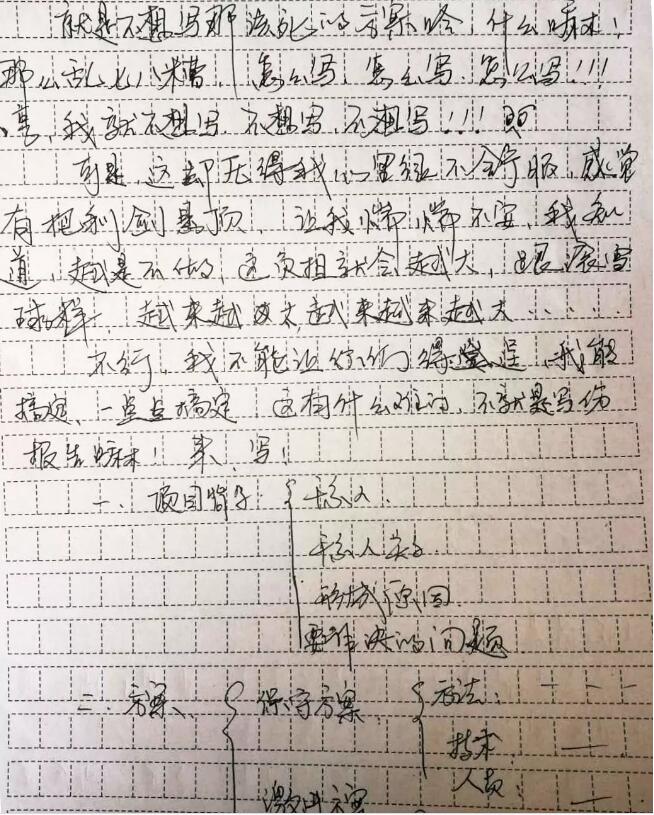 就是不想写那该死的方案哈,什么嘛!
那么乱七八糟,怎么写,怎么写,怎么写!!!
哼,我就不想写,不想写,不想写!!!
可是,这却使得我心里很不舒服,感觉
有把利剑悬顶,让我惴惴不安,我知
道,越是不做,这负担就会越大,跟滚雪
球样,越来越大越来越来越大……
不行,我不能让你们得逞,我能
搞定,一点点搞定,这有什么难的,不就是写份
报告嘛!来,写!
一、项目 {
形成原因
要解决的问题
二、方案、{ 保守方案 { 方法:
技术
人员:
激进方案 {